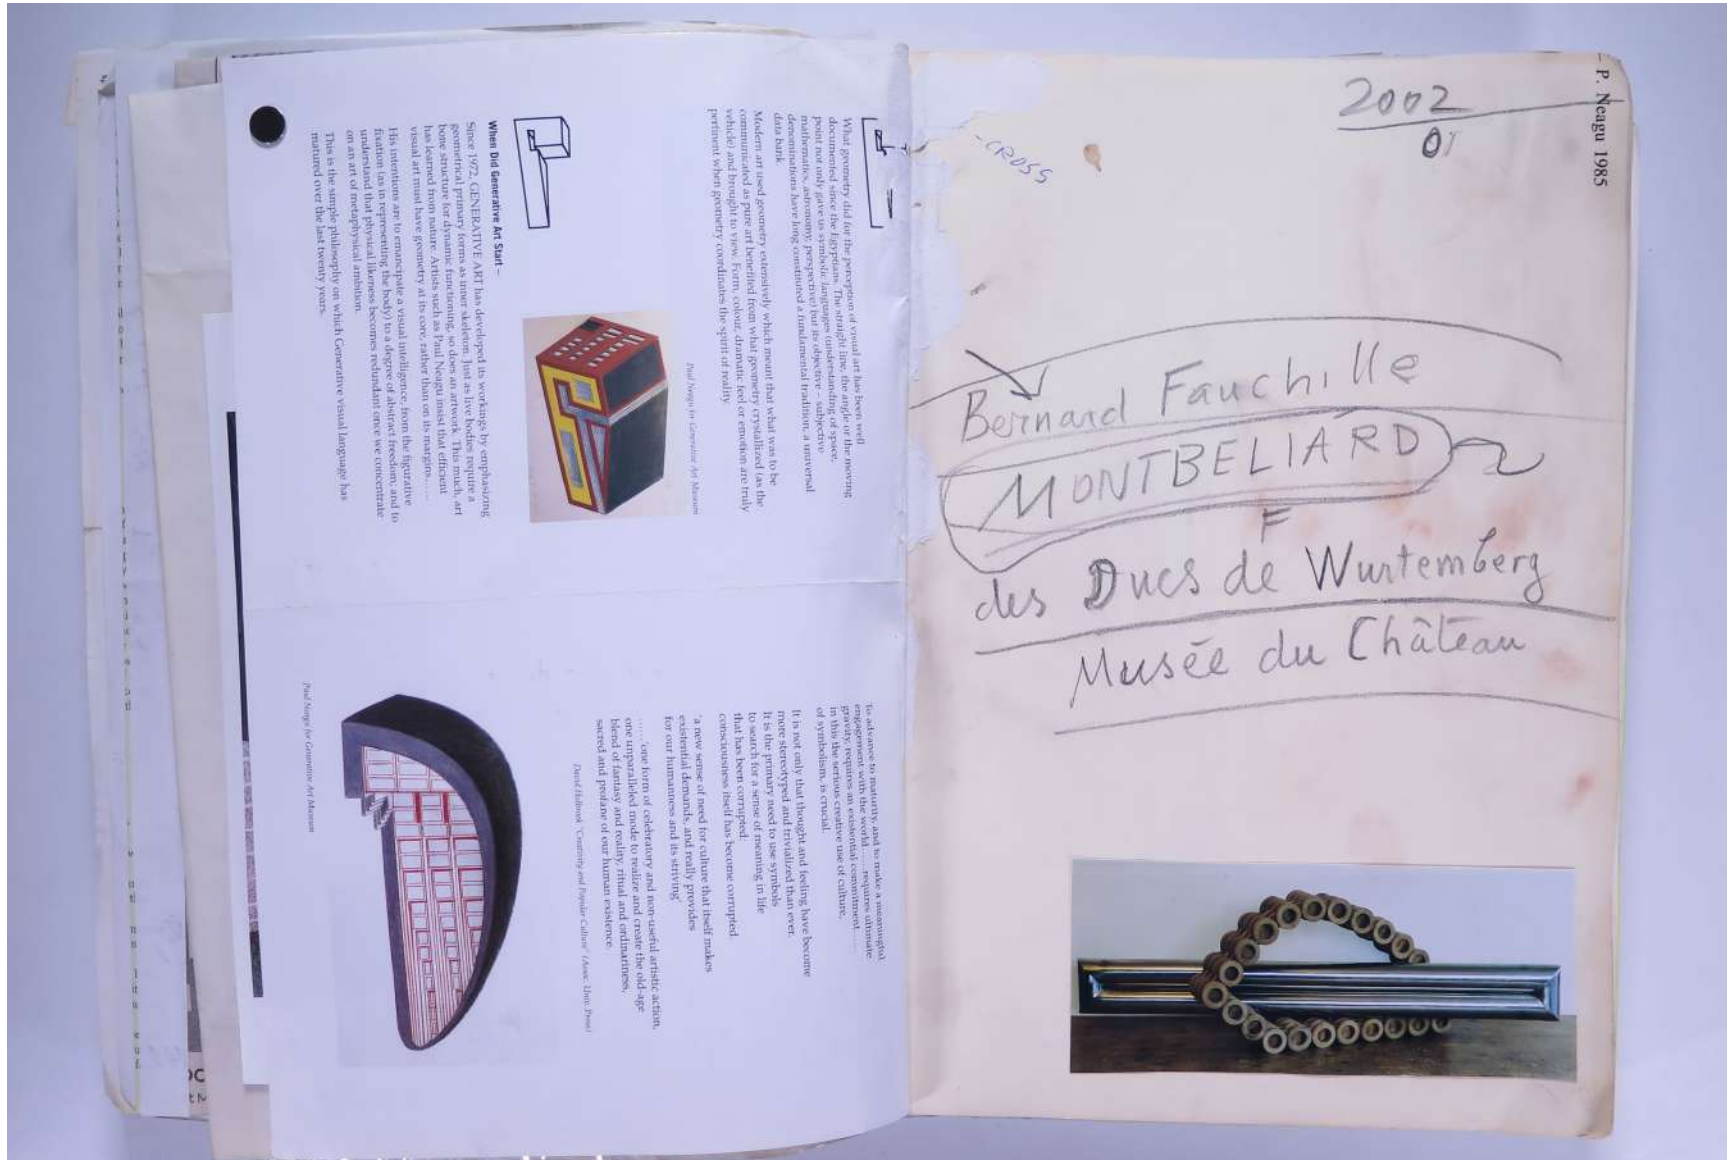 What geometry did for the perception of visual art has been well
documented since the Egyptians. The straight line, the angle or the moving
point not only gave us symbolic languages (understanding of space,
mathematics, astronomy, perspective) but its objective – subjective
denominations have long constituted a fundamental tradition, a universal
data bank.
Modern art used geometry extensively which meant that what was to be
communicated as pure art benefited from what geometry crystallized (as the
vehicle) and brought to view. Form, colour, dramatic feel or emotion are truly
pertinent when geometry coordinates the spirit of reality.
Paul Neagu for Generative Art Museum
When Did Generative Art Start –
Since 1972, GENERATIVE ART has developed its workings by emphasizing
geometrical primary forms as inner skeleton. Just as live bodies require a
bone structure for dynamic functioning, so does an artwork. This much, art
has learned from nature. Artists such as Paul Neagu insist that efficient
visual art must have geometry at its core, rather than on its margins......
His intentions are to emancipate a visual intelligence, from the figurative
fixation (as in representing the body) to a degree of abstract freedom; and to
understand that physical likeness becomes redundant once we concentrate
on an art of metaphysical ambition.
This is the simple philosophy on which Generative visual language has
matured over the last twenty years.
To advance to maturity, and to make a meaningful
engagement with the world ...... requires ultimate
gravity, requires an existential commitment ......
in this the serious creative use of culture,
of symbolism, is crucial.
It is not only that thought and feeling have become
more stereotyped and trivialized than ever.
It is the primary need to use symbols
to search for a sense of meaning in life
that has been corrupted:
consciousness itself has become corrupted.
'a new sense of need for culture that itself makes
existential demands, and really provides
for our humanness and its striving'
...... 'one form of celebratory and non-useful artistic action,
one unparalleled mode to realize and create the old-age
blend of fantasy and reality, ritual and ordinariness,
sacred and profane of our human existence.
David Holbrook "Creativity and Popular Culture" (Assoc. Univ. Press)
Paul Neagu for Generative Art Museum
- CROSS
2002
01
– P. Neagu 1985
Bernard Fauchille
MONTBELIARD
F
des Ducs de Wurtemberg
Musée du Château